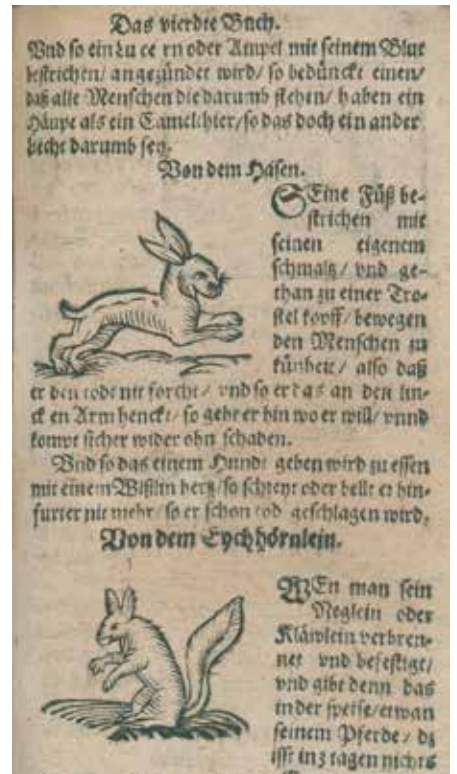 Das vierdte Buch.
Vnd so ein Lu ce rn oder Ampel mit seinem Blut
bestrichen/ angezündet wird/ so bedünckt einen/
daß alle Menschen die darumb stehen/ haben ein
Häupt als ein Camelthier/ so das doch ein ander
liecht darumb sey.
Von dem Hasen.
SEine Füß be-
strichen mit
seinen eigenem
schmaltz/ vnd ge-
than zu einer Tro-
stel kopff/ bewegen
den Menschen zu
künheit/ also daß
er den todt nit förcht/ vnd so er das an den lin-
ck en Arm henckt/ so gehet er hin wo er will/ vnnd
kompt sicher wider ohn schaden.
Vnd so das einem Hundt geben wird zu essen
mit einem Wißlin hertz/ so schreyt oder bellt er hin-
furter nit mehr/ so er schon tod geschlagen wird.
Von dem Eychhörnlein.
WEn man sein
Neglein oder
Kläwlein verbren-
net vnd befestigt/
vnd gibt denn das
in der speise/ etwan
seinem Pferde/ dz
isst in 3 tagen nichts